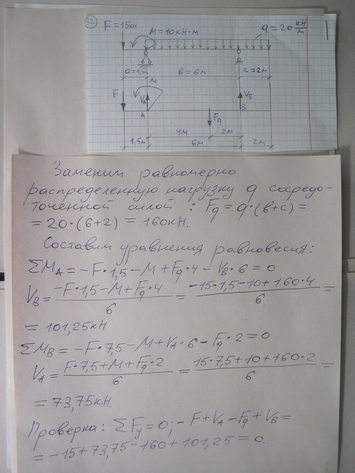 F=15кН
M=10кН·м
q=20 кН/м
a=1м
b=6м
c=2м
F
V_A
M
V_B
A
F_q
B
1,5м
4м
2м
6м
2м
Заменим равномерно
распределенную нагрузку q сосредо-
точенной силой: F_q=q·(b+c)=
=20·(6+2)=160кН.
Составим уравнения равновесия:
ΣM_A=-F·1,5-M+F_q·4-V_B·6=0
V_B=(-F·1,5-M+F_q·4)/6=(-15·1,5-10+160·4)/6=
=101,25кН
ΣM_B=-F·7,5-M+V_A·6-F_q·2=0
V_A=(F·7,5+M+F_q·2)/6=(15·7,5+10+160·2)/6=
=73,75кН.
Проверка: ΣF_y=0; -F+V_A-F_q+V_B=
=-15+73,75-160+101,25=0.